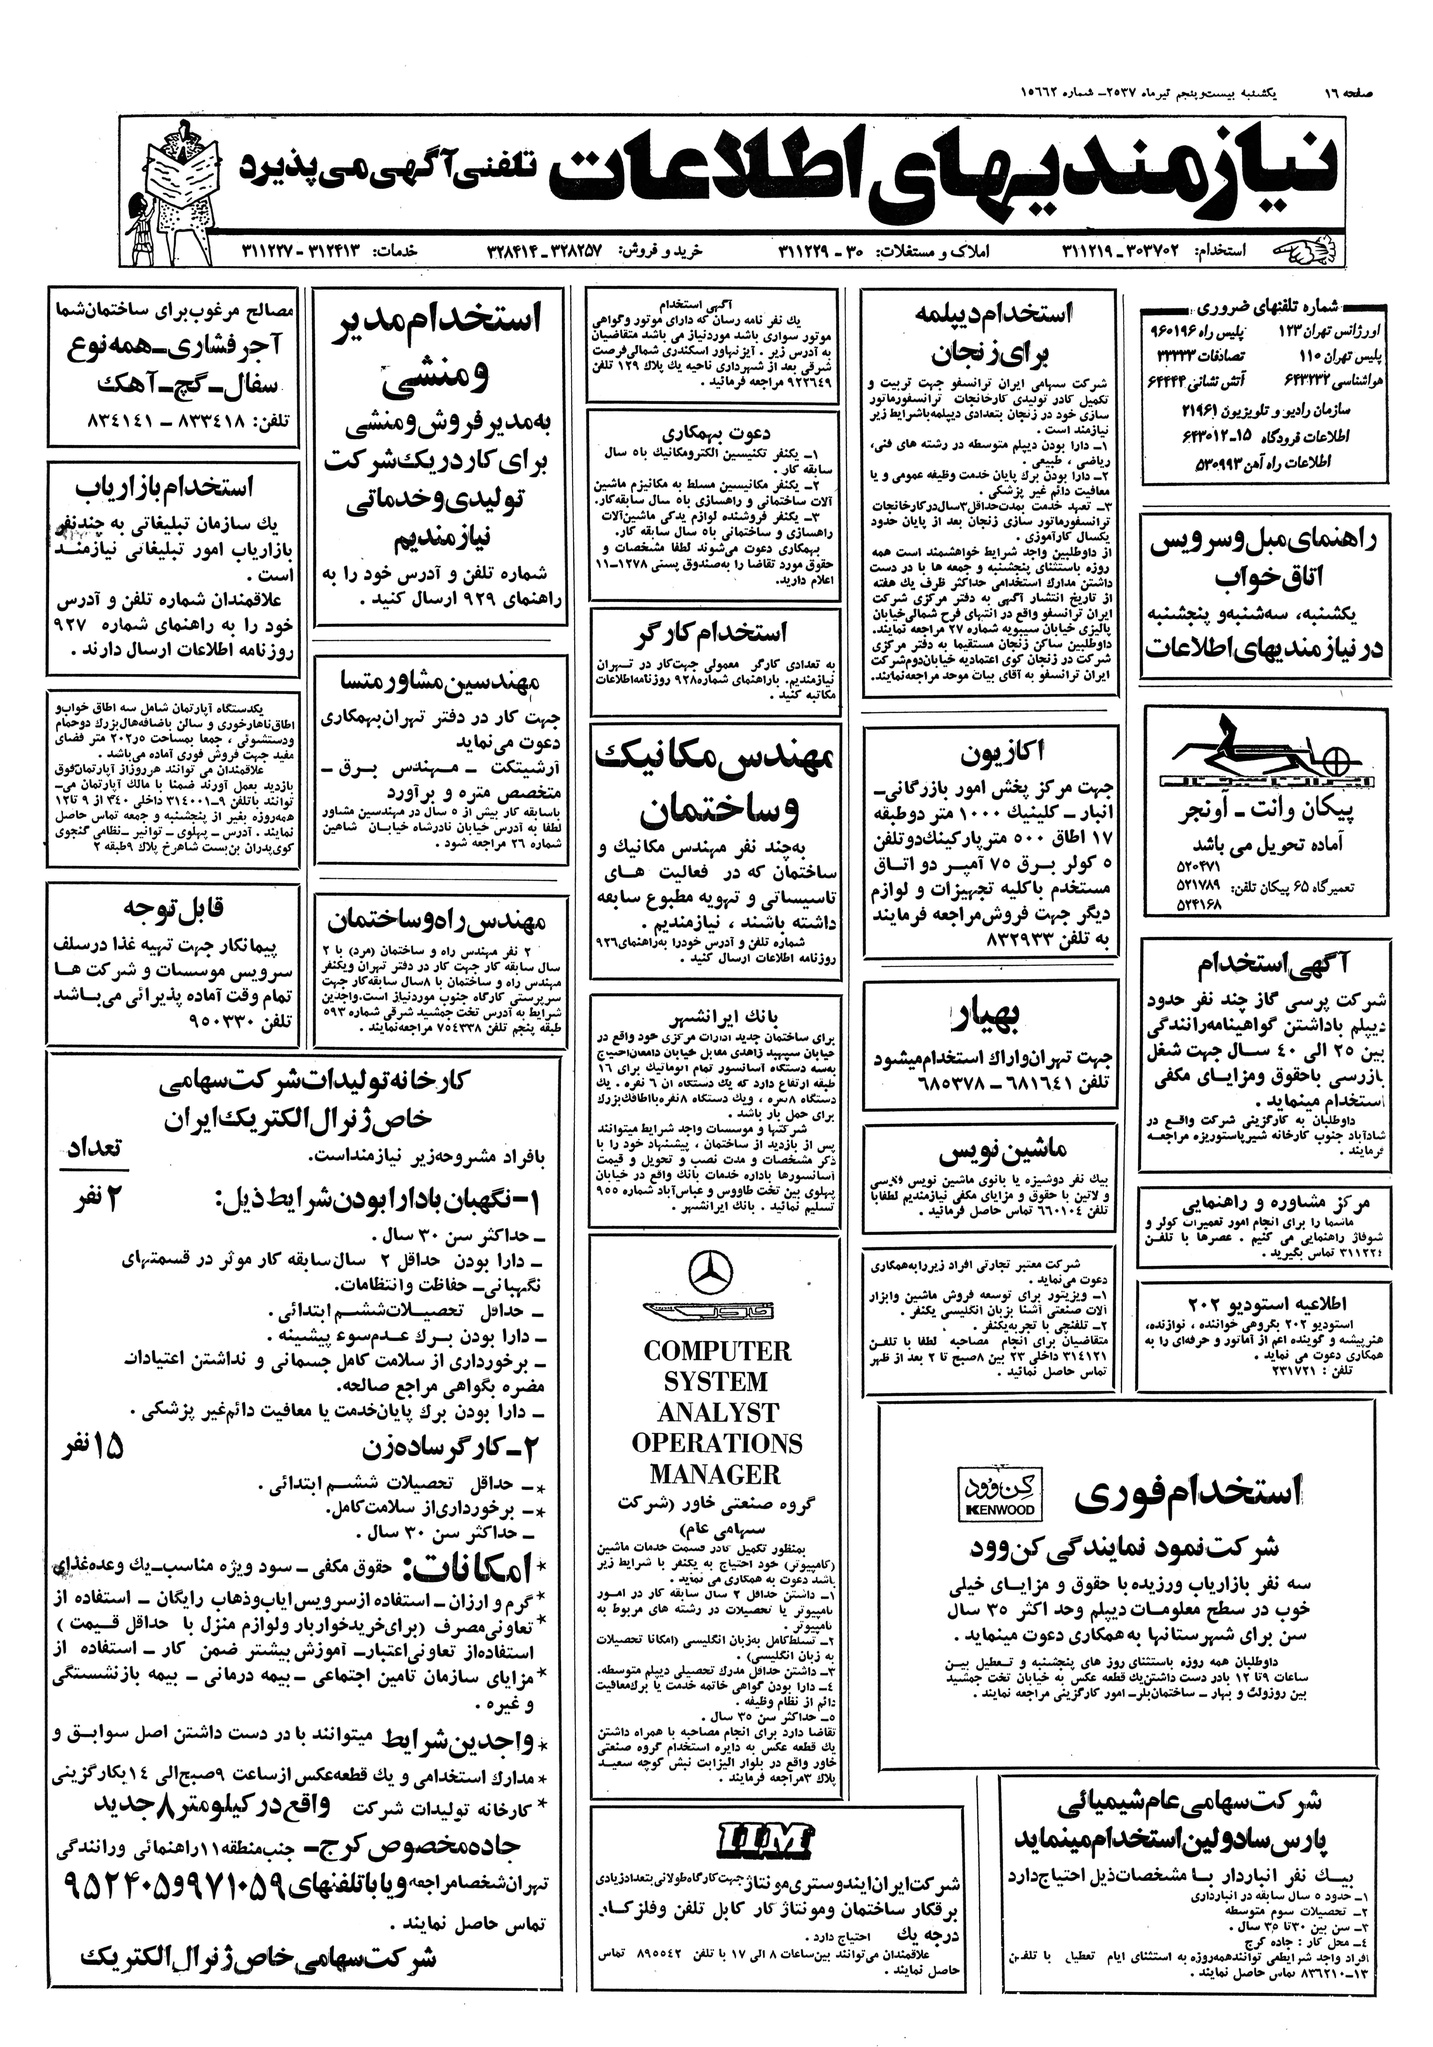 صفحه ۱۶
یکشنبه بیست‌وپنجم تیرماه ۲۵۳۷ـ شماره ۱۵۶۶۲
نیازمندیهای اطلاعات تلفنی آگهی می‌پذیرد
استخدام: ۳۰۳۷۰۲ ـ ۳۱۱۲۱۹
املاک و مستغلات: ۳۰ ـ ۳۱۱۲۲۹
خرید و فروش: ۳۲۸۲۵۷ ـ ۳۲۸۴۱۴
خدمات: ۳۱۲۴۱۳ ـ ۳۱۱۲۲۷
شماره تلفنهای ضروری
اورژانس تهران ۱۲۳ پلیس راه ۹۶۰۱۹۶
پلیس تهران ۱۱۰ تصادفات ۲۳۳۳۳
هواشناسی ۶۴۳۲۳۲ آتش نشانی ۶۴۴۴۴
سازمان رادیو و تلویزیون ۲۱۹۶۱
اطلاعات فرودگاه ۱۵ـ۶۴۳۰۱۲
اطلاعات راه آهن ۵۳۰۹۹۳
راهنمای مبل و سرویس
اتاق خواب
یکشنبه، سه‌شنبه و پنجشنبه
در نیازمندیهای اطلاعات
پیکان وانت ـ آونجر
آماده تحویل می باشد
۵۲۰۴۷۱
تعمیرگاه ۶۵ پیکان تلفن: ۵۲۱۷۸۹
۵۲۴۱۶۸
آگهی استخدام
شرکت پرسی گاز چند نفر حدود
دیپلم باداشتن گواهینامه رانندگی
بین ۲۵ الی ۴۰ سال جهت شغل
بازرسی باحقوق ومزایای مکفی
استخدام مینماید.
داوطلبان به کارگزینی شرکت واقع در
شادآباد جنوب کارخانه شیرپاستوریزه مراجعه
فرمایند.
مرکز مشاوره و راهنمایی
ماشما را برای انجام امور تعمیرات کولر و
شوفاژ راهنمایی می کنیم. عصرها با تلفن
۳۱۱۲۲۴ تماس بگیرید.
اطلاعیه استودیو ۲۰۲
استودیو ۲۰۲ بگروهی خواننده، نوازنده،
هنرپیشه و گوینده اعم از آماتور و حرفه‌ای را به
همکاری دعوت می نماید.
تلفن: ۲۳۱۷۲۱
استخدام دیپلمه
برای زنجان
شرکت سهامی ایران ترانسفو جهت تربیت و
تکمیل کادر تولیدی کارخانجات ترانسفورماتور
سازی خود در زنجان بتعدادی دیپلمه باشرایط زیر
نیازمند است.
۱ـ دارا بودن دیپلم متوسطه در رشته های فنی،
ریاضی، طبیعی.
۲ـ دارا بودن برگ پایان خدمت وظیفه عمومی و یا
معافیت دائم غیر پزشکی.
۳ـ تعهد خدمت بمدت حداقل ۳ سال در کارخانجات
ترانسفورماتور سازی زنجان بعد از پایان حدود
یکسال کارآموزی.
از داوطلبین واجد شرایط خواهشمند است همه
روزه باستثنای پنجشنبه و جمعه ها با در دست
داشتن مدارک استخدامی حداکثر ظرف یک هفته
از تاریخ انتشار آگهی به دفتر مرکزی شرکت
ایران ترانسفو واقع در انتهای فرح شمالی خیابان
پالیزی خیابان سیبویه شماره ۲۷ مراجعه نمایند.
داوطلبین ساکن زنجان مستقیما به دفتر مرکزی
شرکت در زنجان کوی اعتمادیه خیابان دوم شرکت
ایران ترانسفو به آقای بیات موحد مراجعه نمایند.
اکازیون
جهت مرکز پخش امور بازرگانی ـ
انبار ـ کلینیک ۱۰۰۰ متر دوطبقه
۱۷ اطاق ۵۰۰ متر پارکینگ دو تلفن
۵ کولر برق ۷۵ آمپر دو اتاق
مستخدم باکلیه تجهیزات و لوازم
دیگر جهت فروش مراجعه فرمایند
به تلفن ۸۳۲۹۳۳
بهیار
جهت تهران و اراک استخدام میشود
تلفن ۶۸۱۶۴۱ ـ ۶۸۵۳۷۸
ماشین نویس
بیک نفر دوشیزه یا بانوی ماشین نویس فارسی
و لاتین با حقوق و مزایای مکفی نیازمندیم لطفا با
تلفن ۶۶۰۱۰۴ تماس حاصل فرمائید.
شرکت معتبر تجارتی افراد زیر را به همکاری
دعوت می‌نماید.
۱ـ ویزیتور برای توسعه فروش ماشین و ابزار
آلات صنعتی آشنا بزبان انگلیسی یکنفر.
۲ـ تلفنچی با تجربه یکنفر.
متقاضیان برای انجام مصاحبه لطفا با تلفن
۳۱۴۱۲۱ داخلی ۲۳ بین ۸ صبح تا ۲ بعد از ظهر
تماس حاصل نمائید.
استخدام فوری
کن وود
KENWOOD
شرکت نمود نمایندگی کن وود
سه نفر بازاریاب ورزیده با حقوق و مزایای خیلی
خوب در سطح معلومات دیپلم وحد اکثر ۳۵ سال
سن برای شهرستانها به همکاری دعوت مینماید.
داوطلبان همه روزه باستثنای روز های پنجشنبه و تعطیل بین
ساعات ۹ تا ۱۲ بادر دست داشتن یک قطعه عکس به خیابان تخت جمشید
بین روزولت و بهار ـ ساختمان بلر ـ امور کارگزینی مراجعه نمایند.
شرکت سهامی عام شیمیائی
پارس سادولین استخدام مینماید
بیک نفر انباردار با مشخصات ذیل احتیاج دارد
۱ـ حدود ۵ سال سابقه در انبارداری
۲ـ تحصیلات سوم متوسطه
۳ـ سن بین ۳۰ تا ۳۵ سال.
۴ـ محل کار: جاده کرج
افراد واجد شرایط می توانند همه روزه به استثنای ایام تعطیل با تلفن
۱۳ـ۸۳۶۲۱۰ تماس حاصل نمایند.
آگهی استخدام
یک نفر نامه رسان که دارای موتور و گواهی
موتور سواری باشد مورد نیاز می باشد متقاضیان
به آدرس زیر. آیزنهاور اسکندری شمالی فرصت
شرقی بعد از شهرداری ناحیه یک پلاک ۱۲۹ تلفن
۹۲۲۶۴۹ مراجعه فرمائید.
دعوت بهمکاری
۱ـ یکنفر تکنیسین الکترومکانیک با ۵ سال
سابقه کار.
۲ـ یکنفر مکانیسین مسلط به مکانیزم ماشین
آلات ساختمانی و راهسازی با ۵ سال سابقه کار.
۳ـ یکنفر فروشنده لوازم یدکی ماشین آلات
راهسازی و ساختمانی با ۵ سال سابقه کار.
بهمکاری دعوت می‌شوند لطفا مشخصات و
حقوق مورد تقاضا را به صندوق پستی ۱۲۷۸ـ۱۱
اعلام دارید.
استخدام کارگر
به تعدادی کارگر معمولی جهت کار در تهران
نیازمندیم. باراهنمای شماره ۹۲۸ روزنامه اطلاعات
مکاتبه کنید.
مهندس مکانیک
و ساختمان
به چند نفر مهندس مکانیک و
ساختمان که در فعالیت های
تاسیساتی و تهویه مطبوع سابقه
داشته باشند، نیازمندیم.
شماره تلفن و آدرس خود را به راهنمای ۹۲۶
روزنامه اطلاعات ارسال کنید.
بانک ایرانشهر
برای ساختمان جدید ادارات مرکزی خود واقع در
خیابان سپهبد زاهدی مقابل خیابان دامغان احتیاج
به سه دستگاه آسانسور تمام اتوماتیک برای ۱۶
طبقه ارتفاع دارد که یک دستگاه آن ۶ نفره، یک
دستگاه ۸ نفره، و یک دستگاه ۸ نفره با اطاقک بزرگ
برای حمل بار باشد.
شرکتها و موسسات واجد شرایط میتوانند
پس از بازدید از ساختمان، پیشنهاد خود را با
ذکر مشخصات و مدت نصب و تحویل و قیمت
آسانسورها باداره خدمات بانک واقع در خیابان
پهلوی بین تخت طاووس و عباس‌آباد شماره ۹۵۵
تسلیم نمائید. بانک ایرانشهر.
COMPUTER
SYSTEM
ANALYST
OPERATIONS
MANAGER
گروه صنعتی خاور (شرکت
سهامی عام)
بمنظور تکمیل کادر قسمت خدمات ماشین
(کامپیوتر) خود احتیاج به یکنفر با شرایط زیر
باشد دعوت به همکاری می نماید.
۱ـ داشتن حداقل ۲ سال سابقه کار در امور
کامپیوتر یا تحصیلات در رشته های مربوط به
کامپیوتر.
۲ـ تسلط کامل به زبان انگلیسی (امکانا تحصیلات
به زبان انگلیسی).
۳ـ داشتن حداقل مدرک تحصیلی دیپلم متوسطه.
۴ـ دارا بودن گواهی خاتمه خدمت یا برگ معافیت
دائم از نظام وظیفه.
۵ـ حداکثر سن ۳۵ سال.
تقاضا دارد برای انجام مصاحبه با همراه داشتن
یک قطعه عکس به دایره استخدام گروه صنعتی
خاور واقع در بلوار الیزابت نبش کوچه سعید
پلاک ۳ مراجعه فرمایند.
IIM
شرکت ایران ایندوستری مونتاژ جهت کارگاه طولانی بتعداد زیادی
برقکار ساختمان و مونتاژ کار کابل تلفن و فلزکار
درجه یک احتیاج دارد.
علاقمندان می‌توانند بین ساعات ۸ الی ۱۷ با تلفن ۸۹۵۵۴۲ تماس
حاصل نمایند.
استخدام مدیر
و منشی
به مدیر فروش و منشی
برای کار در یک شرکت
تولیدی و خدماتی
نیازمندیم
شماره تلفن و آدرس خود را به
راهنمای ۹۲۹ ارسال کنید.
مهندسین مشاور متسا
جهت کار در دفتر تهران بهمکاری
دعوت می‌نماید
آرشیتکت ـ مهندس برق ـ
متخصص متره و برآورد
باسابقه کار بیش از ۵ سال در مهندسین مشاور
لطفا به آدرس خیابان نادرشاه خیابان شاهین
شماره ۲۶ مراجعه شود.
مهندس راه و ساختمان
۲ نفر مهندس راه و ساختمان (مرد) با ۲
سال سابقه کار جهت کار در دفتر تهران و یکنفر
مهندس راه و ساختمان با ۸ سال سابقه کار جهت
سرپرستی کارگاه جنوب مورد نیاز است. واجدین
شرایط به آدرس تخت جمشید شرقی شماره ۵۹۳
طبقه پنجم تلفن ۷۵۴۳۳۸ مراجعه نمایند.
مصالح مرغوب برای ساختمان شما
آجر فشاری ـ همه نوع
سفال ـ گچ ـ آهک
تلفن: ۸۳۳۴۱۸ ـ ۸۳۴۱۴۱
استخدام بازاریاب
یک سازمان تبلیغاتی به چند نفر
بازاریاب امور تبلیغاتی نیازمند
است.
علاقمندان شماره تلفن و آدرس
خود را به راهنمای شماره ۹۲۷
روزنامه اطلاعات ارسال دارند.
یکدستگاه آپارتمان شامل سه اطاق خواب و
اطاق ناهارخوری و سالن باضافه هال بزرگ دوحمام
و دستشوئی، جمعا بمساحت ۲۰۲٫۵ متر فضای
مفید جهت فروش فوری آماده می‌باشد.
علاقمندان می توانند هرروز از آپارتمان فوق
بازدید بعمل آورند ضمنا با مالک آپارتمان می‌ـ
توانند با تلفن ۹ـ۳۱۴۰۰۱ داخلی ۳۴۰ از ۹ تا ۱۲
همه روزه بغیر از پنجشنبه و جمعه تماس حاصل
نمایند. آدرس ـ پهلوی ـ توانیر ـ نظامی گنجوی
کوی پدران بن بست شاهرخ پلاک ۹ طبقه ۲
قابل توجه
پیمانکار جهت تهیه غذا در سلف
سرویس موسسات و شرکت ها
تمام وقت آماده پذیرائی می‌باشد
تلفن ۹۵۰۳۳۰
کارخانه تولیدات شرکت سهامی
خاص ژنرال الکتریک ایران
بافراد مشروحه زیر نیازمند است. تعداد
۱ـ نگهبان با دارا بودن شرایط ذیل: ۲ نفر
ـ حداکثر سن ۳۰ سال.
ـ دارا بودن حداقل ۲ سال سابقه کار موثر در قسمتهای
نگهبانی ـ حفاظت و انتظامات.
ـ حداقل تحصیلات ششم ابتدائی.
ـ دارا بودن برگ عدم سوء پیشینه.
ـ برخورداری از سلامت کامل جسمانی و نداشتن اعتیادات
مضره بگواهی مراجع صالحه.
ـ دارا بودن برگ پایان خدمت یا معافیت دائم غیر پزشکی.
۲ـ کارگر ساده زن ۱۵ نفر
*ـ حداقل تحصیلات ششم ابتدائی.
*ـ برخورداری از سلامت کامل.
ـ حداکثر سن ۳۰ سال.
* امکانات: حقوق مکفی ـ سود ویژه مناسب ـ یک وعده غذای
* گرم و ارزان ـ استفاده از سرویس ایاب و ذهاب رایگان ـ استفاده از
* تعاونی مصرف (برای خرید خواربار و لوازم منزل با حداقل قیمت)
استفاده از تعاونی اعتبار ـ آموزش بیشتر ضمن کار ـ استفاده از
* مزایای سازمان تامین اجتماعی ـ بیمه درمانی ـ بیمه بازنشستگی
و غیره.
* واجدین شرایط میتوانند با در دست داشتن اصل سوابق و
* مدارک استخدامی و یک قطعه عکس از ساعت ۹ صبح الی ۱۴ بکارگزینی
* کارخانه تولیدات شرکت واقع در کیلومتر ۸ جدید
جاده مخصوص کرج ـ جنب منطقه ۱۱ راهنمائی و رانندگی
تهران شخصا مراجعه و یا با تلفنهای ۹۷۱۰۵۹ و ۹۵۲۴۰۵
تماس حاصل نمایند.
شرکت سهامی خاص ژنرال الکتریک